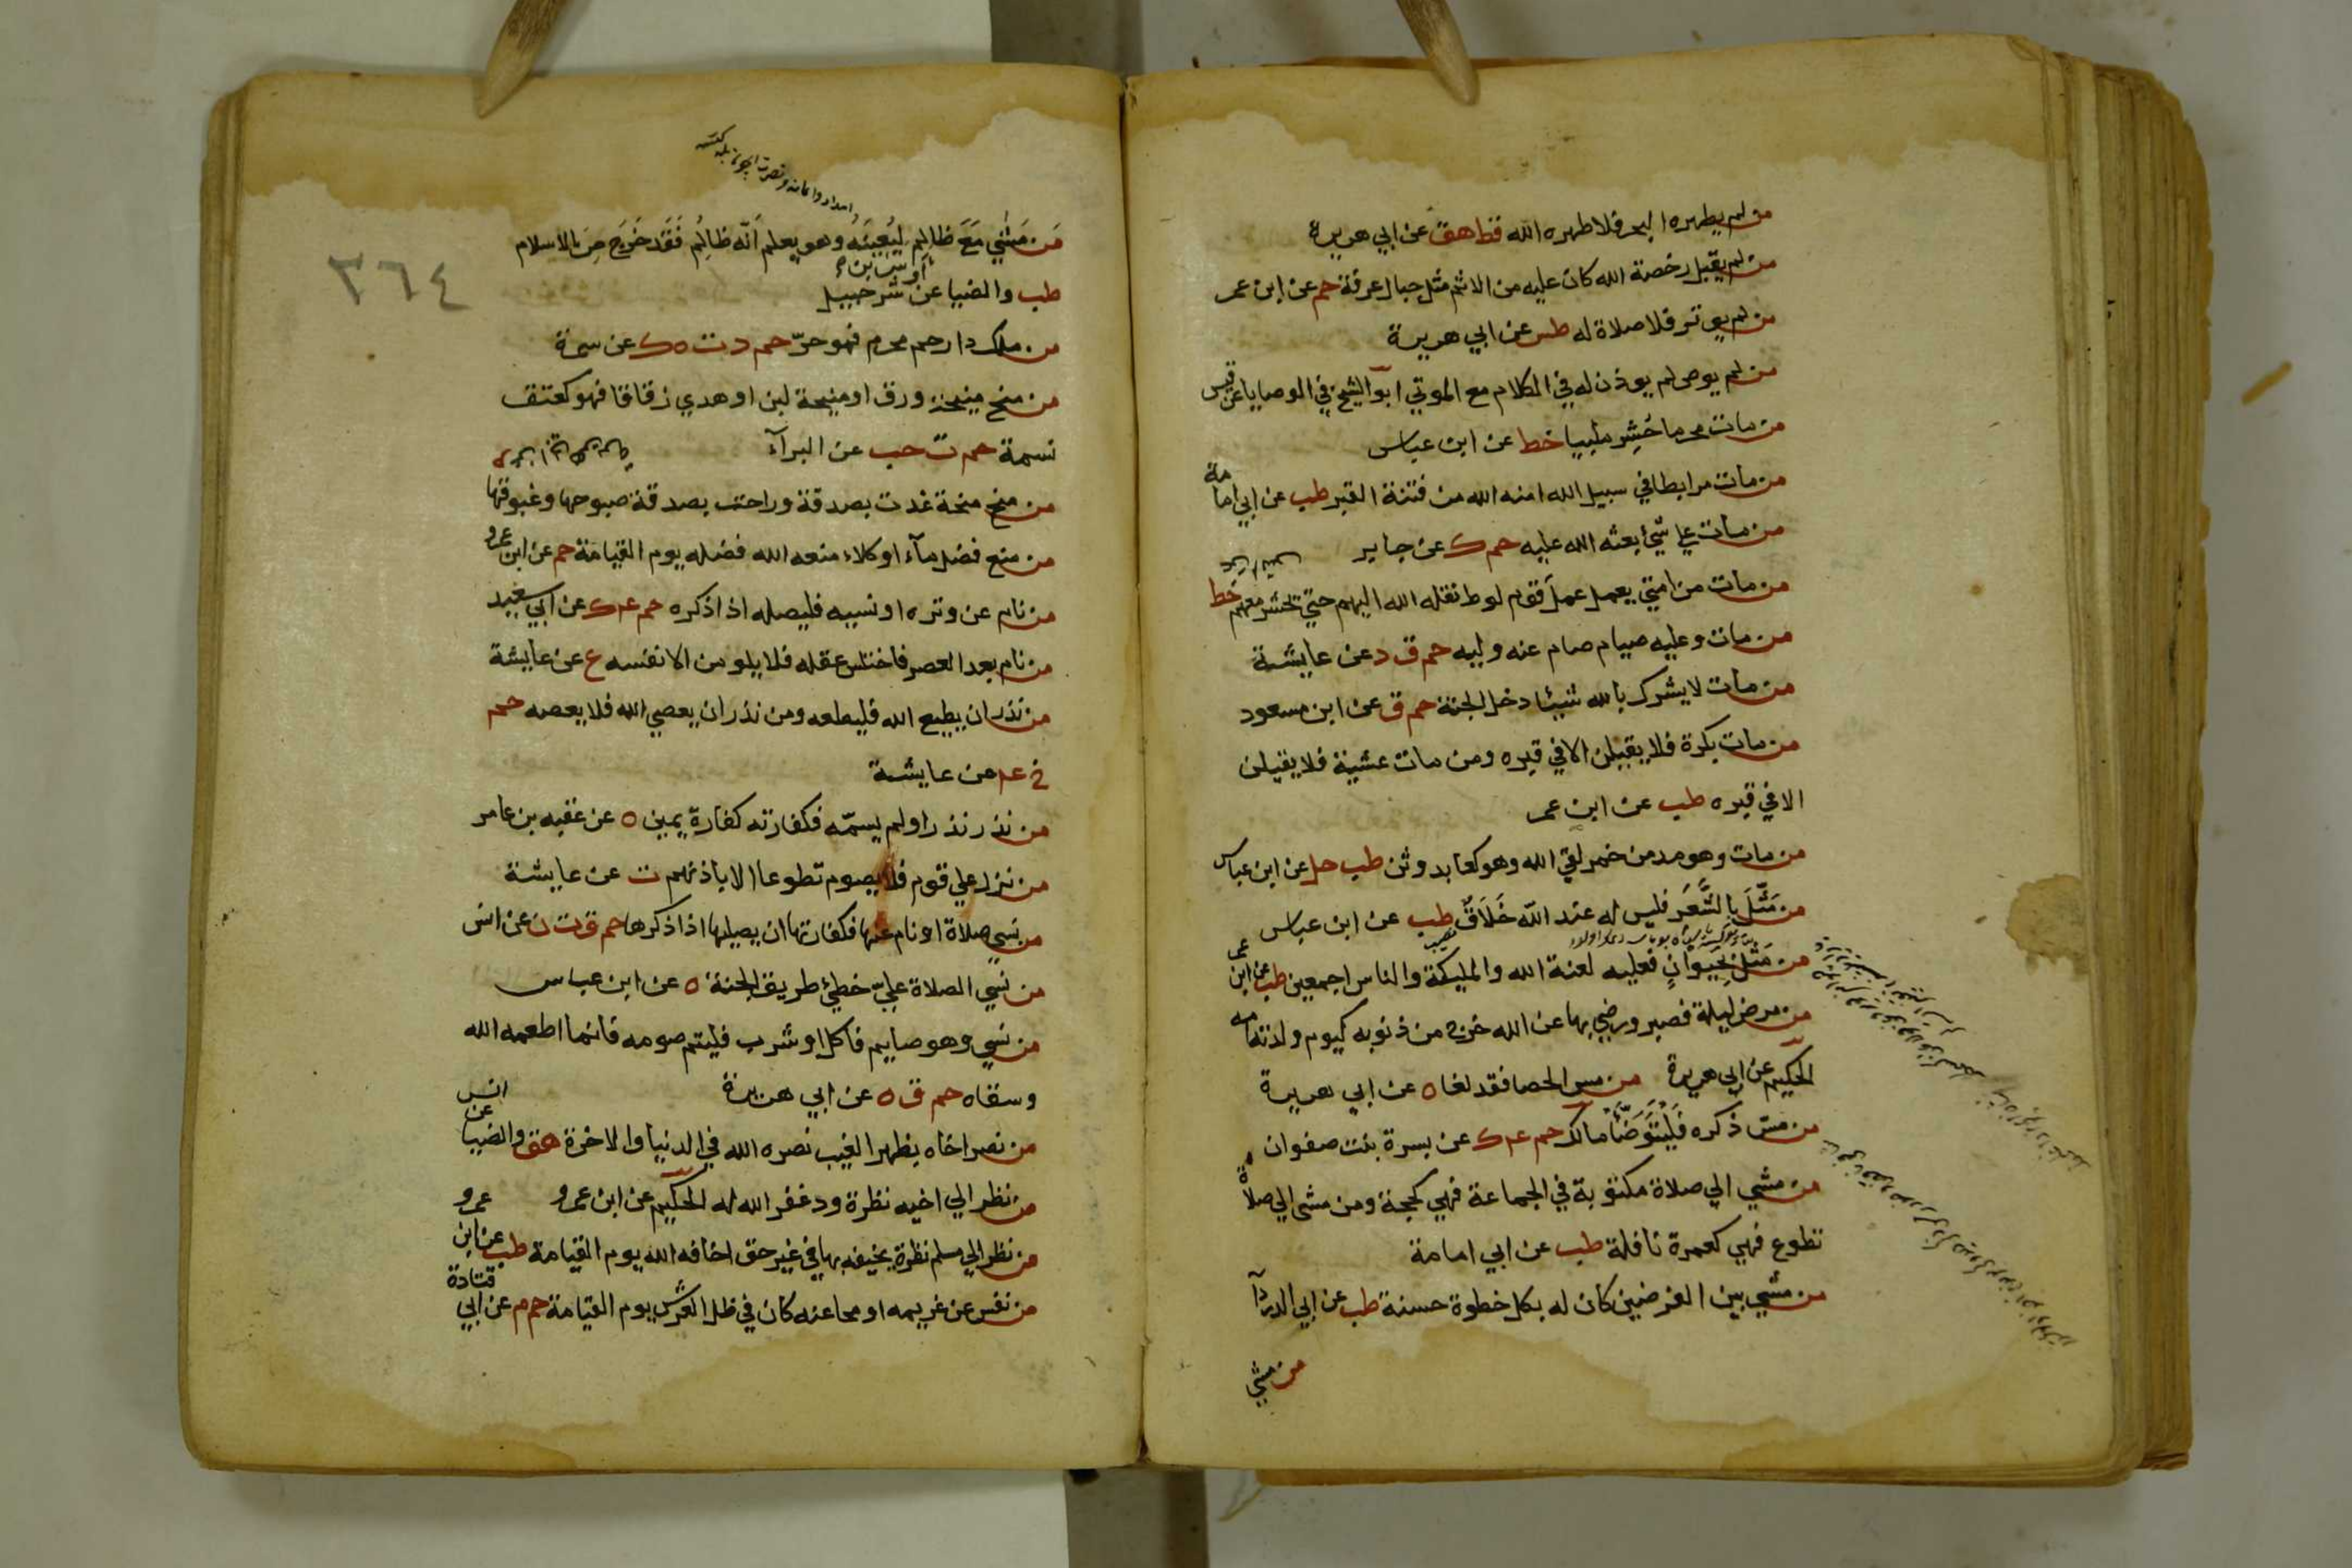 من لم يطهره البحر فلا طهره الله قط هق عن ابي هريرة
من لم يقبل رخصة الله كان عليه من الاثم مثل جبال عرفة حم عن ابن عمر
من لم يوتر فلا صلاة له طس عن ابي هريرة
من لم يوص لم يوذن له في الكلام مع الموتي ابو الشيخ في الوصايا عن قيس
من مات محرما حشر ملبيا خط عن ابن عباس
من مات مرابطا في سبيل الله امنه الله من فتنة القبر طب عن ابي امامة
من مات علي شيء بعثه الله عليه حم ك عن جابر
من مات من امتي يعمل عمل قوم لوط نقله الله اليهم حتي يحشر معهم خط
من مات وعليه صيام صام عنه وليه حم ق د عن عايشة
من مات لا يشرك بالله شيئا دخل الجنة حم ق عن ابن مسعود
من مات بكرة فلا يقيلن الا في قبره ومن مات عشية فلا يقيلن
الا في قبره طب عن ابن عمر
من مات وهو مدمن خمر لقي الله وهو كعابد وثن طب حل عن ابن عباس
من مَثَّلَ بِالشَّعَرِ فليس له عند الله خَلَاقٌ طب عن ابن عباس
نصيب
من مَثَّلَ بِحَيوانٍ فعليه لعنة الله والمليكة والناس اجمعين طب عن ابن عمر
من مرض ليلة فصبر ورضي بها عن الله خرج من ذنوبه كيوم ولدته امه
الحكيم عن ابي هريرة من مس الحصا فقد لغا ه عن ابي هريرة
من مسّ ذكره فَلْيَتَوَضَّأ مالك حم عم ك عن بسرة بنت صفوان
من مشي الي صلاة مكتوبة في الجماعة فهي كحجة ومن مشي الي صلاة
تطوع فهي كعمرة نافلة طب عن ابي امامة
من مشي بين الغرضين كان له بكل خطوة حسنة طب عن ابي الدردآ
من مشي
٣٦٤
مَن مَشي مَعَ ظالِمٍ لِيُعِينَهُ وهو يعلم اَنَّه ظالِمٌ فَقَد خَرَجَ مِنَ الاسلام
طب والضيا عن اوس بن شرحبيل
من ملك ذا رحم محرم فهو حرّ حم د ت ه ك عن سمرة
من منح منيحة ورق او منيحة لبن او هدي زقاقا فهو كعتق
نسمة حم ت حب عن البرآء
من منح منحة غدت بصدقة وراحت بصدقة صبوحها وغبوقها
من منع فضل مآء او كلاء منعه الله فضله يوم القيامة حم عن ابن عمرو
من نام عن وتره او نسيه فليصله اذا ذكره حم عم ك عن ابي سعيد
من نام بعد العصر فاختلس عقله فلا يلومن الا نفسه ع عن عايشة
من نذر ان يطيع الله فليطعه ومن نذر ان يعصي الله فلا يعصه حم
خ عم عن عايشة
من نذر نذرا ولم يسمّه فكفارته كفارة يمين ه عن عقبه بن عامر
من نزل علي قوم فلا يصوم تطوعا الا باذنهم ت عن عايشة
من نسي صلاة او نام عنها فكفارتها ان يصليها اذا ذكرها حم ق ت ن عن انس
من نسي الصلاة عليّ خطئ طريق الجنة ه عن ابن عباس
من نسي وهو صايم فاكل او شرب فليتم صومه فانما اطعمه الله
وسقاه حم ق ه عن ابي هريرة
من نصر اخاه بظهر الغيب نصره الله في الدنيا والاخرة هق والضيا عن انس
من نظر الي اخيه نظرة ود غفر الله له الحكيم عن ابن عمرو
من نظر الي مسلم نظرة يخيفه بها في غير حق اخافه الله يوم القيامة طب عن ابن عمرو
من نفس عن غريمه او محا عنه كان في ظل العرش يوم القيامة حم م عن ابي قتادة